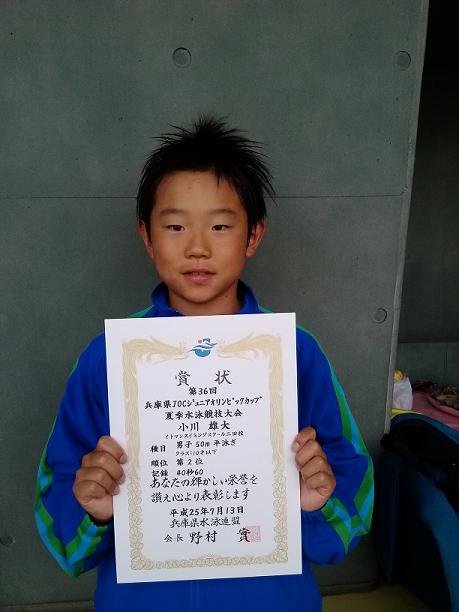 賞状
第36回
兵庫県JOCジュニアオリンピックカップ
夏季水泳競技大会
小川 雄大
イトマンスイミングスクール三田校
種目 男子 50m 平泳ぎ
クラス:10才以下
順位 第2位
記録 40秒60
あなたの輝かしい栄誉を
讃え心より表彰します
平成25年7月13日
兵庫県水泳連盟
会長 野村 實